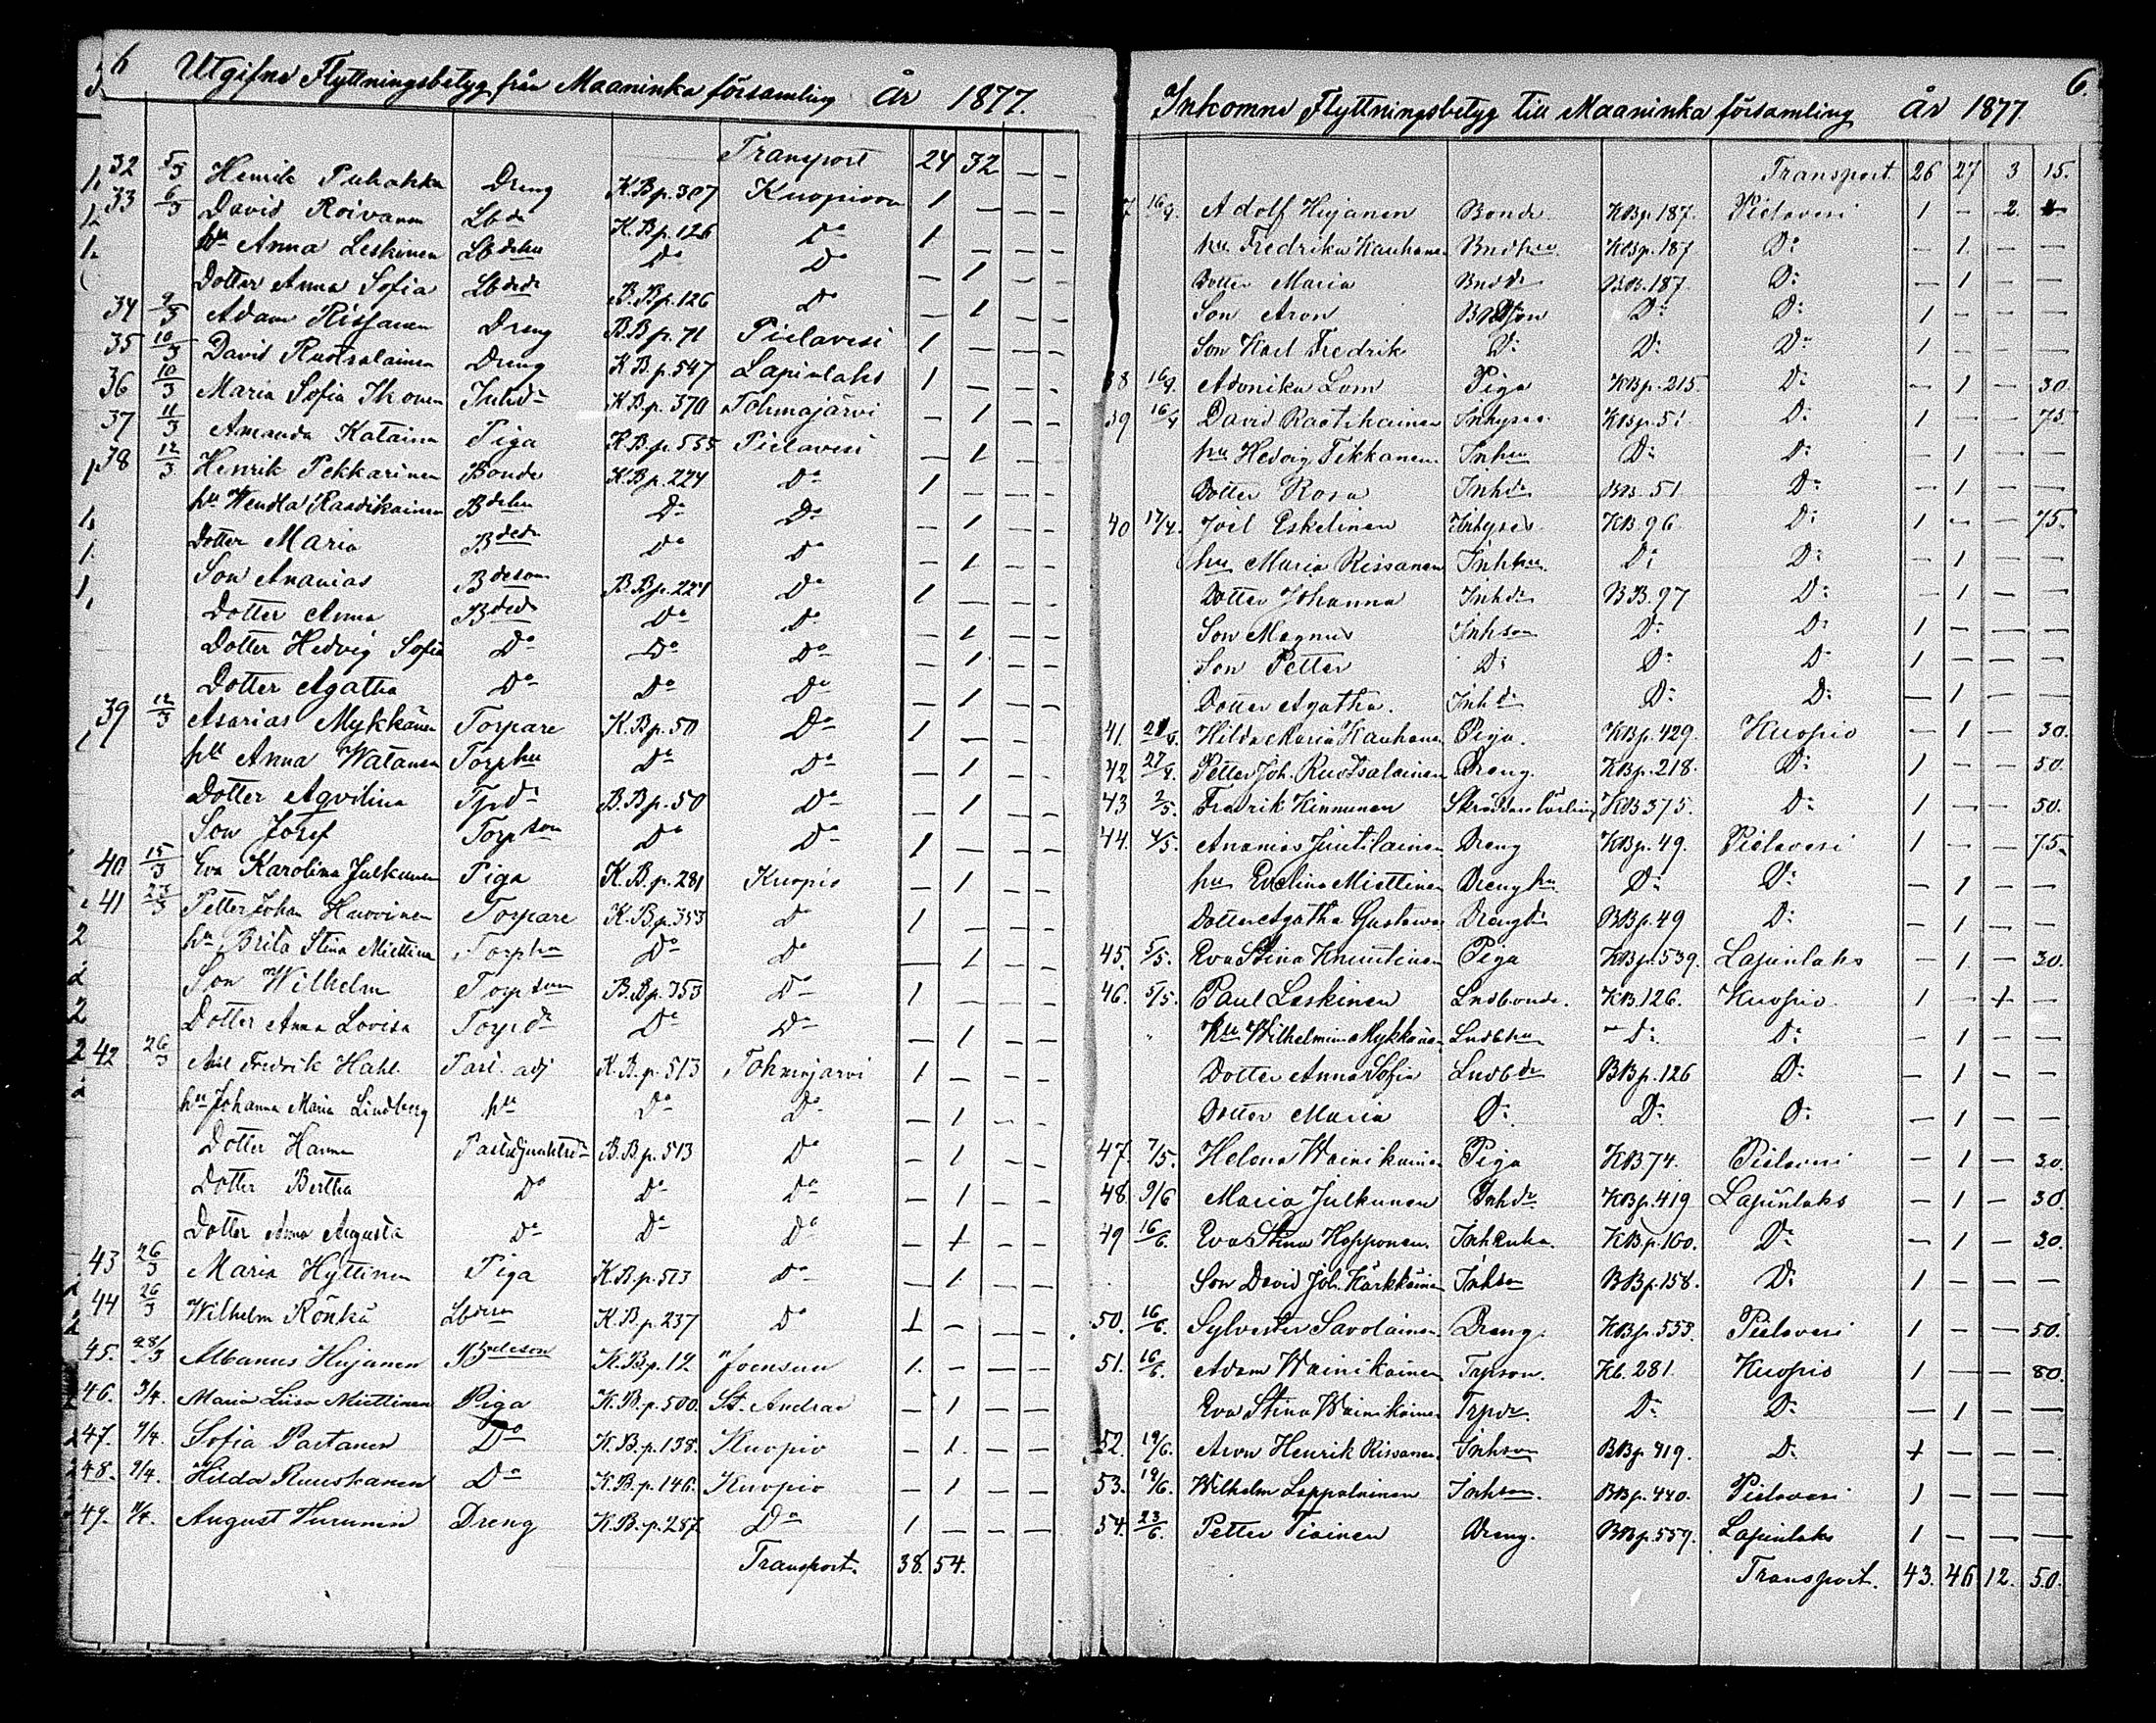 6 Utgifne Flyttningsbetyg från Maaninka församling År 1877.
Transport 24 32 — —
32 5/3 Henrik Puhakka Dreng K.B.p.307 Kuopion 1 — — —
33 6/3 David Roivanen Lbde K.B.p.126 Do 1 — — —
hu Anna Leskinen Lbdehu Do Do — 1 — —
Dotter Anna Sofia Lbdedr B.B.p.126 Do — 1 — —
34 9/3 Adam Rissanen Dreng B.B.p.71 Pielavesi 1 — — —
35 10/3 David Ruotsalainen Dreng K.B.p.547 Lapinlaks 1 — — —
36 10/3 Maria Sofia Ikonen Inhdr K.B.p.370 Tohmajärvi — 1 — —
37 11/3 Amanda Katainen Piga K.B.p.555 Pielavesi — 1 — —
38 12/3 Henrik Pekkarinen Bonde K.B.p.224 Do 1 — — —
hu Wendla Raadikainen Bdehu Do Do — 1 — —
Dotter Maria Bdedr Do Do — 1 — —
Son Ananias Bdeson B.B.p.224 Do 1 — — —
Dotter Anna Bdedr Do Do — 1 — —
Dotter Hedvig Sofia Do Do Do — 1 — —
Dotter Agatha Do Do Do — 1 — —
39 12/3 Asarias Mykkänen Torpare K.B.p.50 Do 1 — — —
hu Anna Watanen Torphu Do Do — 1 — —
Dotter Aqvilina Tpdr B.B.p.50 Do — 1 — —
Son Josef Torpson Do Do 1 — — —
40 15/3 Eva Karolina Julkunen Piga K.B.p.281 Kuopio — 1 — —
41 23/3 Petter Johan Huovinen Torpare K.B.p.353 Do 1 — — —
hu Brita Stina Miettinen Torphu Do Do — 1 — —
Son Wilhelm Torpson B.B.p.353 Do 1 — — —
Dotter Anna Lovisa Torpdr Do Do — 1 — —
42 26/3 Axel Fredrik Hahl Past. adj K.B.p.513 Tohmajärvi 1 — — —
hu Johanna Maria Lindberg hu Do Do — 1 — —
Dotter Hanna B.B.p.513 Do — 1 — —
Dotter Bertha Do Do Do — 1 — —
Dotter Anna Augusta Do Do Do — 1 — —
43 26/3 Maria Hyttinen Piga K.B.p.513 Do — 1 — —
44 26/3 Wilhelm Rönkä K.B.p.237 Do 1 — — —
45. 28/3 Albanus Hujanen Bndeson K.B.p.12 Joensuu 1. — — —
46. 3/4. Maria Liisa Miettinen Piga K.B.p.500. St. Andrae — 1 — —
47. 9/4. Sofia Partanen Do K.B.p.138. Kuopio — 1. — —
48. 9/4. Hilda Ruuskanen Do K.B.p.146. Kuopio — 1 — —
49. 11/4. August Turunen Dreng K.B.p.287 Do 1 — — —
Transport. 38. 54.
Inkomne Flyttningsbetyg till Maaninka församling År 1877. 6.
Transport. 26 27 3 15.
7 16/4. Adolf Hujanen Bonde KBp.187. Pielavesi 1 — 2.
hu Fredrika Kauhanen Bndhu KBp.187 Do — 1. — —
Dotter Maria Bnddr BB.187. Do — 1 — —
Son Aron Bndson Do Do 1 — — —
Son Karl Fredrik Do Do Do 1 — — —
38 16/4. Adonika Lom Piga KBp.215. Do — 1 — 30.
39 16/4 David Raatikainen Inhyses KBp.51 Do 1 — — 75.
hu Hedvig Tikkanen Inhu Do Do — 1 — —
Dotter Rosa Inhdr BB.51 Do — 1 — —
40 17/4. Joel Eskelinen Inhyses KB.96 Do 1 — — 75.
hu Maria Rissanen Inhhu. Do Do — 1 — —
Dotter Johanna Inhdr BB.97 Do — 1 — —
Son Magnus Inhson Do Do 1 — — —
Son Petter Do Do Do 1 — — —
Dotter Agatha. Inhdr Do Do — 1 — —
41. 21/4. Hilda Maria Kauhanen Piga. KBp.429. Kuopio — 1 — 30.
42 27/4. Petter Joh. Ruotsalainen Dreng. KBp.218. Do 1 — — 50.
43 2/5. Fredrik Kinnunen Skräddare lärling KB.375. Do 1 — — 50.
44. 4/5. Ananias Juutilainen Dreng KBp.49. Pielavesi 1 — — 75.
hu Evelina Miettinen Drenghu. Do Do — 1 — —
Dotter Agatha Gustava Drengdr BBp.49 Do — 1 — —
45. 5/5. Eva Stina Knuutinen Piga KBp.539. Lapinlaks — 1 — 30.
46. 5/5. Paul Leskinen Lndbonde. KB.126. Kuopio 1 — 1 —
Hu Wilhelmina Mykkänen Lndbhu Do Do — 1 — —
Dotter Anna Sofia Lndbdr BBp.126 Do — 1 — —
Dotter Maria Do Do Do — 1 — —
47. 7/5. Helena Wainikainen Piga KB74. Pielavesi — 1 — 30.
48. 9/6 Maria Julkunen Inhdr KBp.419 Lapinlaks — 1 — 30.
49 16/6. Eva Stina Hopponen. Inhenka. KBp.160. Do — 1 — 30.
Son David Joh. Kärkkäinen Inhson BBp.158. Do 1 — — —
50. 16/6. Sylvester Savolainen. Dreng. KBp.553. Pielavesi 1 — — 50.
51. 16/6. Adam Wainikainen Trpson. Kb.281. Kuopio 1 — — 80.
Eva Stina Wainikainen Trpdr. Do Do — 1 — —
52. 19/6. Aron Henrik Rissanen. Inhson BBp.419. Do 1 — — —
53. 19/6. Wilhelm Leppalainen Inhson. BBp.440. Pielavesi 1 — — —
54. 23/6. Petter Tiainen Dreng. BBp.559. Lapinlaks 1 — — —
Transport. 43. 46 12. 50.